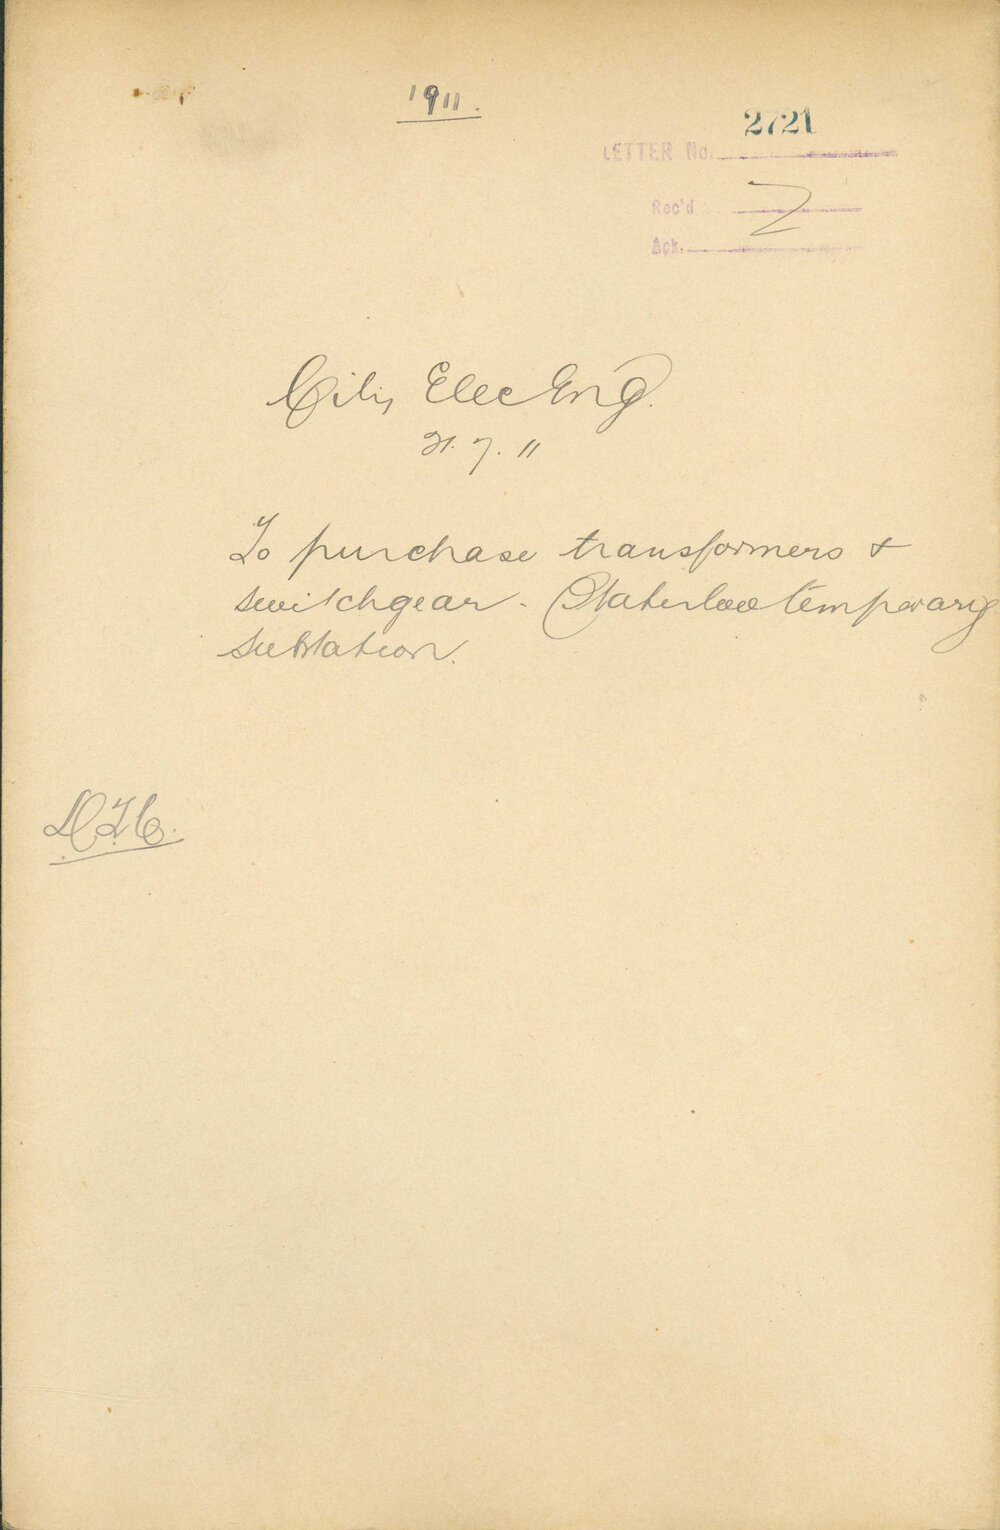 1911.
2721
LETTER No.
Rec'd
Ack.
City Elec Eng.
21. 7. 11
To purchase transformers &
switchgear - Waterloo temporary
substation.